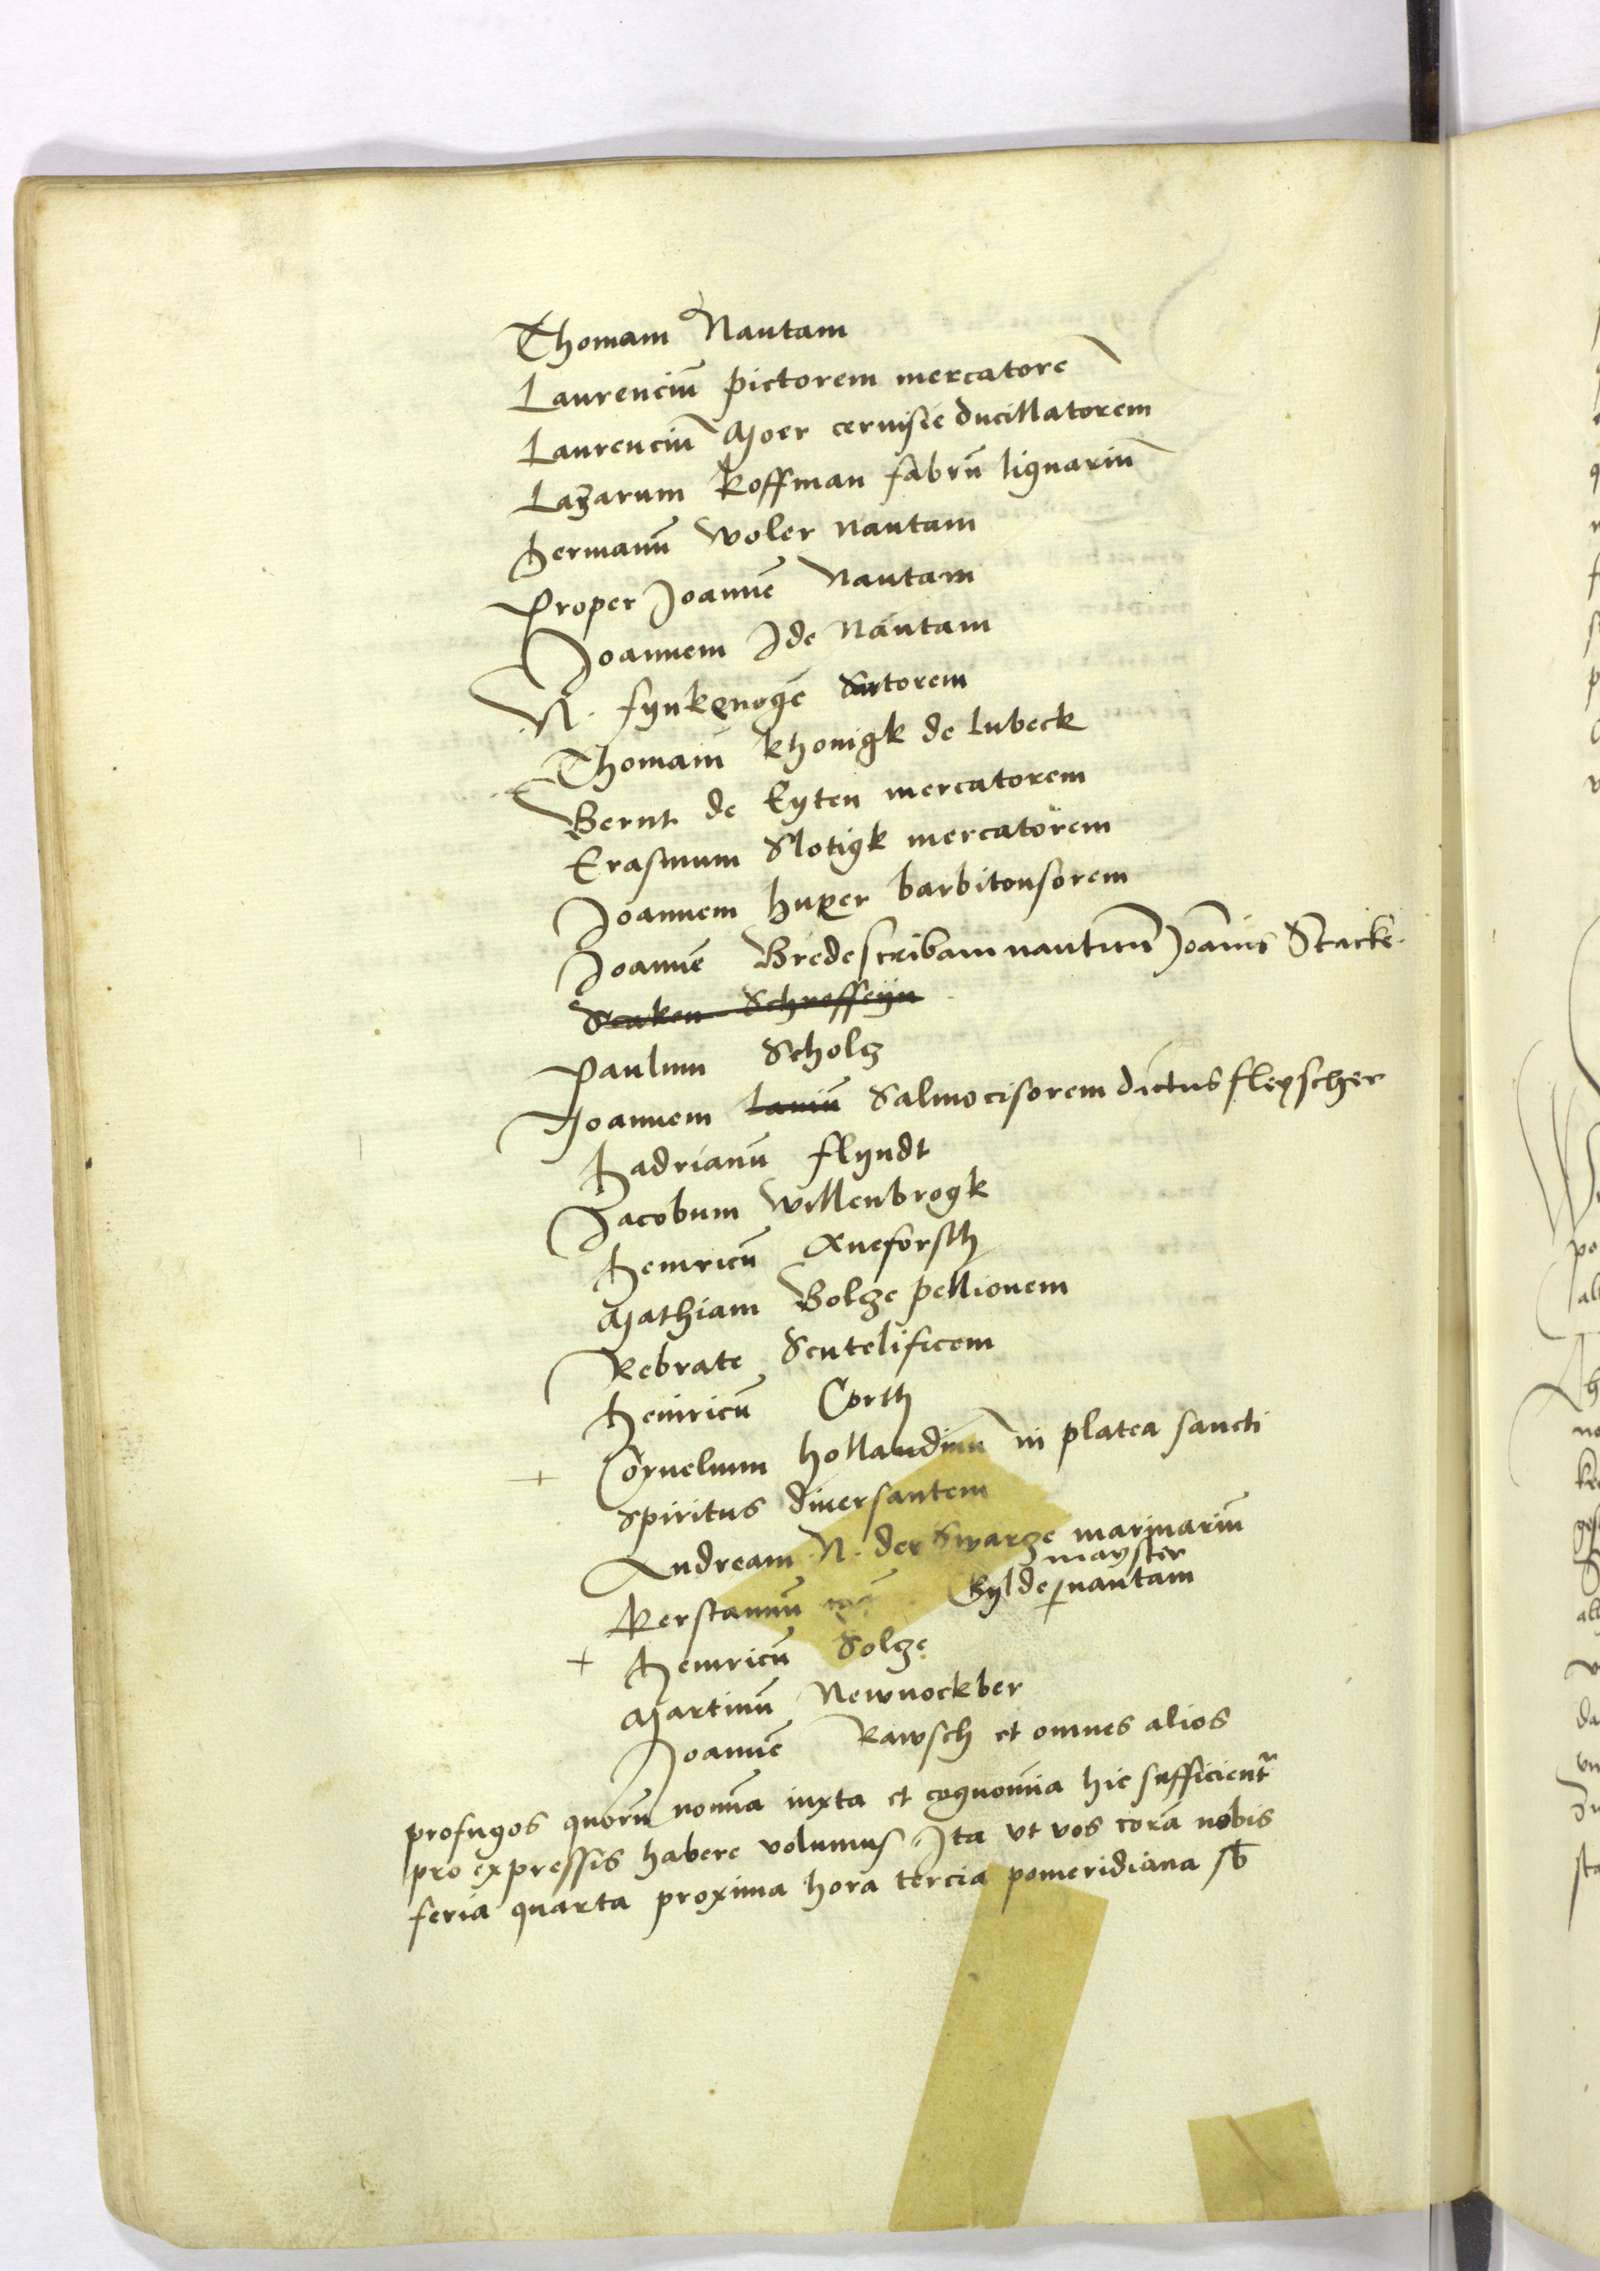 Thomam Nautam
Laurenciū pictorem mercatorē
Laurenciū Moer cervisie ducillatorem
Lazarum Koffman fabrū lignariū
Hermanū Woler nautam
Proper Joannē Nautam
Joannem Ide Nautam
N. fynkenogē Sutorem
Thomam Khonigk de lubeck
Bernt de Eyten mercatorem
Erasmum Slotigk mercatorem
Joannem huxer barbitonsorem
Joannē Brede scribam nauticū Joānis Stacke
Scuken Schroffeyn
Paulum Scholz
Joannem Laniū Salmocisorem dictus fleyscher
Hadrianū flyndt
Jacobum Willenbrogk
Henricū Queforsth
Mathiam Bolze pellionem
Rebrate Scutelificem
Henricū Corth
+ Cornelium hollandinū in platea sancti
Spiritus diversantem
Andream N. der Swarze marinariū
mayster
Kerstannū Gylde nautam
+ Henricū Solze
Martinū Newnockber
Joannē Rawsch et omnes alios
profugos quorū nomīa iuxta et cognomīa hic sufficient̄
pro expressis habere volumus Ita vt vos corā nobis
feria quarta proxima hora tercia pomeridiana sƀ